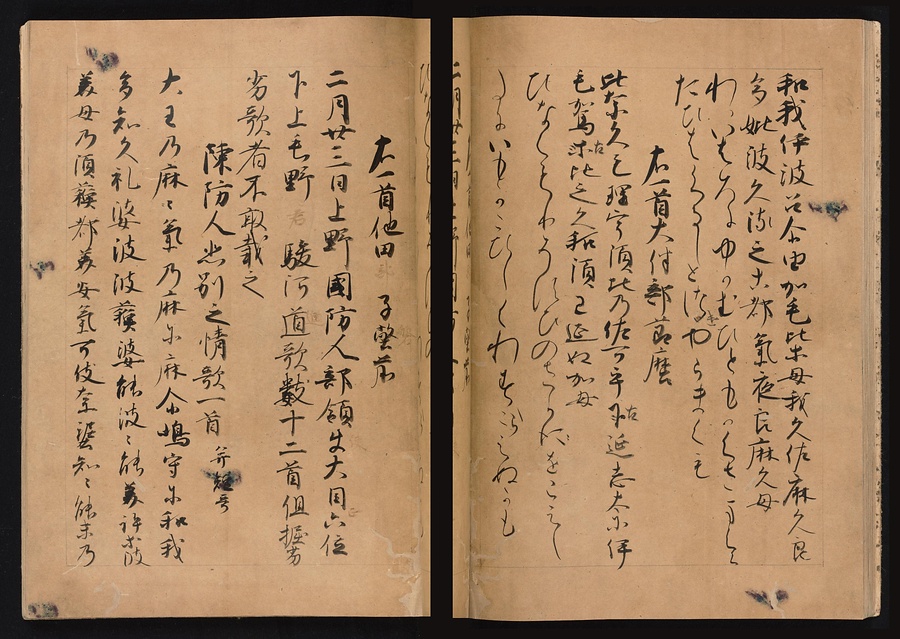 和我伊波呂尓由加毛比等母我久佐麻久良
多妣波久流之等都氣夜良麻久母
わかいはろにゆかむひともかくさまくら
たひはくるしとつけやらまくも
右一首大伴部節麿
比奈久毛理宇須比乃佐可乎古延志太尓伊
毛賀古比之久和須良延奴加母
ひなくもりうすひのさかをこえし
たにいもかこひしくわすらえぬかも
右一首他田部子磐前
二月廿三日上野國防人部領使大目正六位
下上毛野君駿河進歌數十二首但拙
劣歌者不取載之
陳防人悲別之情歌一首 并短哥
大王乃麻々氣乃麻尓麻尓嶋守尓和我
多知久礼婆波波蘇婆能波々能美許等波
美母乃須蘇都美安氣可伎奈埿知々能未乃